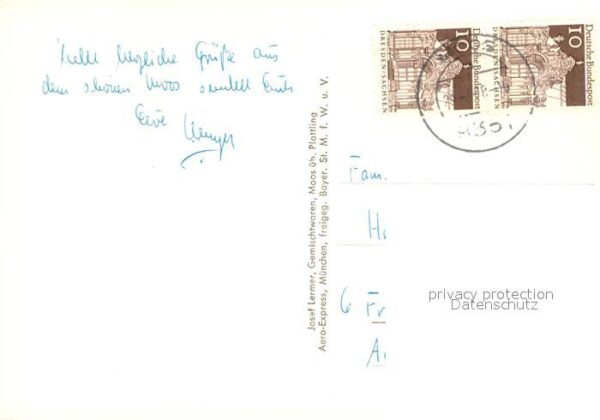 herzliche Grüße aus
dem schönen Moos sendet Euch
Josef Lermer, Gemischtwaren, Moos üb. Plattling
Aero-Express, München, freigeg. Bayer. St. M. f. W. u. V.
10
DRESDEN/SACHSEN
Deutsche Bundespost
10
DRESDEN/SACHSEN
Deutsche Bundespost
Fam.
H.
6 Fr
A.
privacy protection
Datenschutz